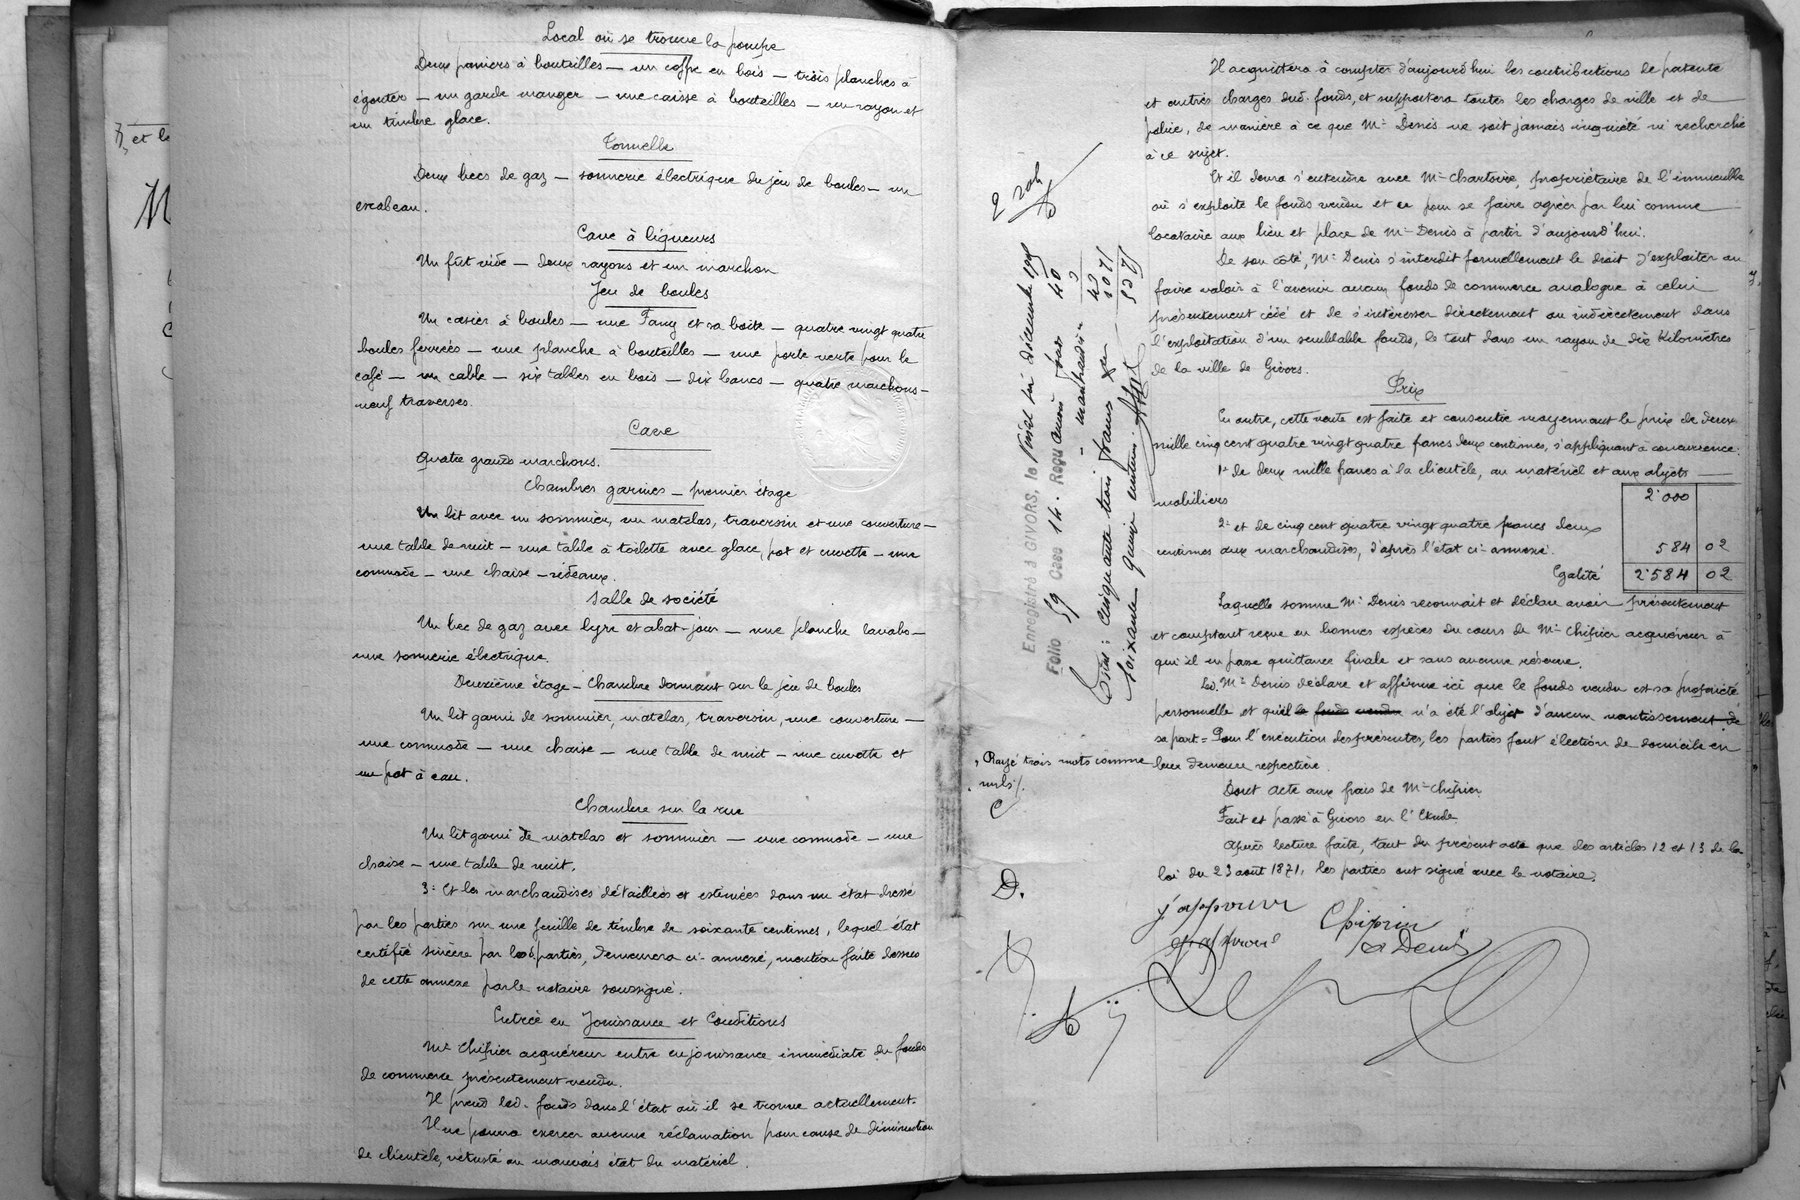 Local où se trouve la pompe
Deux paniers à bouteilles — un coffre en bois — trois planches à
égouter — un garde manger — une caisse à bouteilles — un rayon et
un timbre glace.
Tonnelle
Deux becs de gaz — sonnerie électrique du jeu de boules — un
escabeau.
Cave à liqueurs
Un fût vide — deux rayons et un marchon
Jeu de boules
Un casier à boules — une Fany et sa boîte — quatre vingt quatre
boules ferrées — une planche à bouteilles — une porte verte pour le
café — un cable — six tables en bois — dix bancs — quatre marchons —
neuf traverses.
Cave
Quatre grands marchons.
Chambres garnies — premier étage
Un lit avec un sommier, un matelas, traversin et une couverture —
une table de nuit — une table à toilette avec glace, pot et cuvette — une
commode — une chaise — rideaux.
Salle de société
Un bec de gaz avec lyre et abat-jour — une planche lavabo —
une sonnerie électrique.
Deuxième étage — Chambre donnant sur le jeu de boules
Un lit garni de sommier, matelas, traversin, une couverture —
une commode — une chaise — une table de nuit — une cuvette et
un pot à eau.
Chambre sur la rue
Un lit garni de matelas et sommier — une commode — une
chaise — une table de nuit.
3° Et les marchandises détaillées et estimées dans un état dressé
par les parties sur une feuille de timbre de soixante centimes, lequel état
certifié sincère par les parties, demeurera ci-annexé, mention faite dessus
de cette annexe par le notaire soussigné.
Entrée en Jouissance et Conditions
Mr Chipier acquéreur entre en jouissance immédiate du fonds
de commerce présentement vendu.
Il prend led. fonds dans l'état où il se trouve actuellement.
Il ne pourra exercer aucune réclamation pour cause de diminution
de clientèle, vétusté ou mauvais état du matériel.
et le
M
Il acquittera à compter d'aujourd'hui les contributions de patente
et autres charges dud. fonds, et supportera toutes les charges de ville et de
police, de manière à ce que Mr Denis ne soit jamais inquiété ni recherché
à ce sujet.
Et il devra s'entendre avec Mr Chartoire, propriétaire de l'immeuble
où s'exploite le fonds vendu et ce pour se faire agréer par lui comme
locataire aux lieu et place de Mr Denis à partir d'aujourd'hui.
De son côté, Mr Denis s'interdit formellement le droit d'exploiter ou
faire valoir à l'avenir aucun fonds de commerce analogue à celui
présentement cédé et de s'intéresser directement ou indirectement dans
l'exploitation d'un semblable fonds, le tout dans un rayon de dix kilomètres
de la ville de Givors.
Prix
En outre, cette vente est faite et consentie moyennant le prix de deux
mille cinq cent quatre vingt quatre francs deux centimes, s'appliquant à concurrence:
1° de deux mille francs à la clientèle, au matériel et aux objets
mobiliers 2.000
2° et de cinq cent quatre vingt quatre francs deux
centimes aux marchandises, d'après l'état ci-annexé. 584 02
Egalité 2.584 02
Laquelle somme Mr Denis reconnait et déclare avoir présentement
et comptant reçue en bonnes espèces du cours de Mr Chipier acquéreur à
qui il en passe quittance finale et sans aucune réserve.
Led. Mr Denis déclare et affirme ici que le fonds vendu est sa propriété
personnelle et qu'il le fonds vendu n'a été l'objet d'aucun nantissement de
sa part = Pour l'exécution des présentes, les parties font élection de domicile en
leur demeure respective.
Dont acte aux frais de Mr Chipier.
Fait et passé à Givors en l'Etude
Après lecture faite, tant du présent acte que des articles 12 et 13 de la
loi du 23 août 1871, les parties ont signé avec le notaire.
Rayé trois mots comme
nuls
C
D.
j'approuve Chipier
approuvé Denis
Enregistré à GIVORS, le
Folio 59 Case 14. Reçu